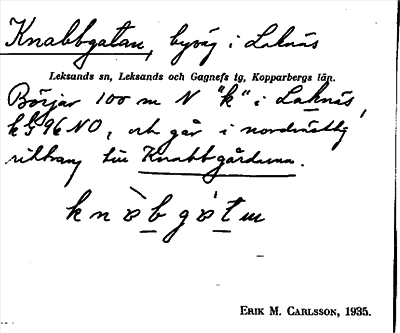 Knabbgatan, byväg i Laknäs
Leksands sn, Leksands och Gagnefs tg, Kopparbergs län.
Börjar 100 m N "k" i Laknäs,
96 NO, och går i nordvästlig
riktning till Knabbgårdarna.
ERIK M. CARLSSON, 1935.